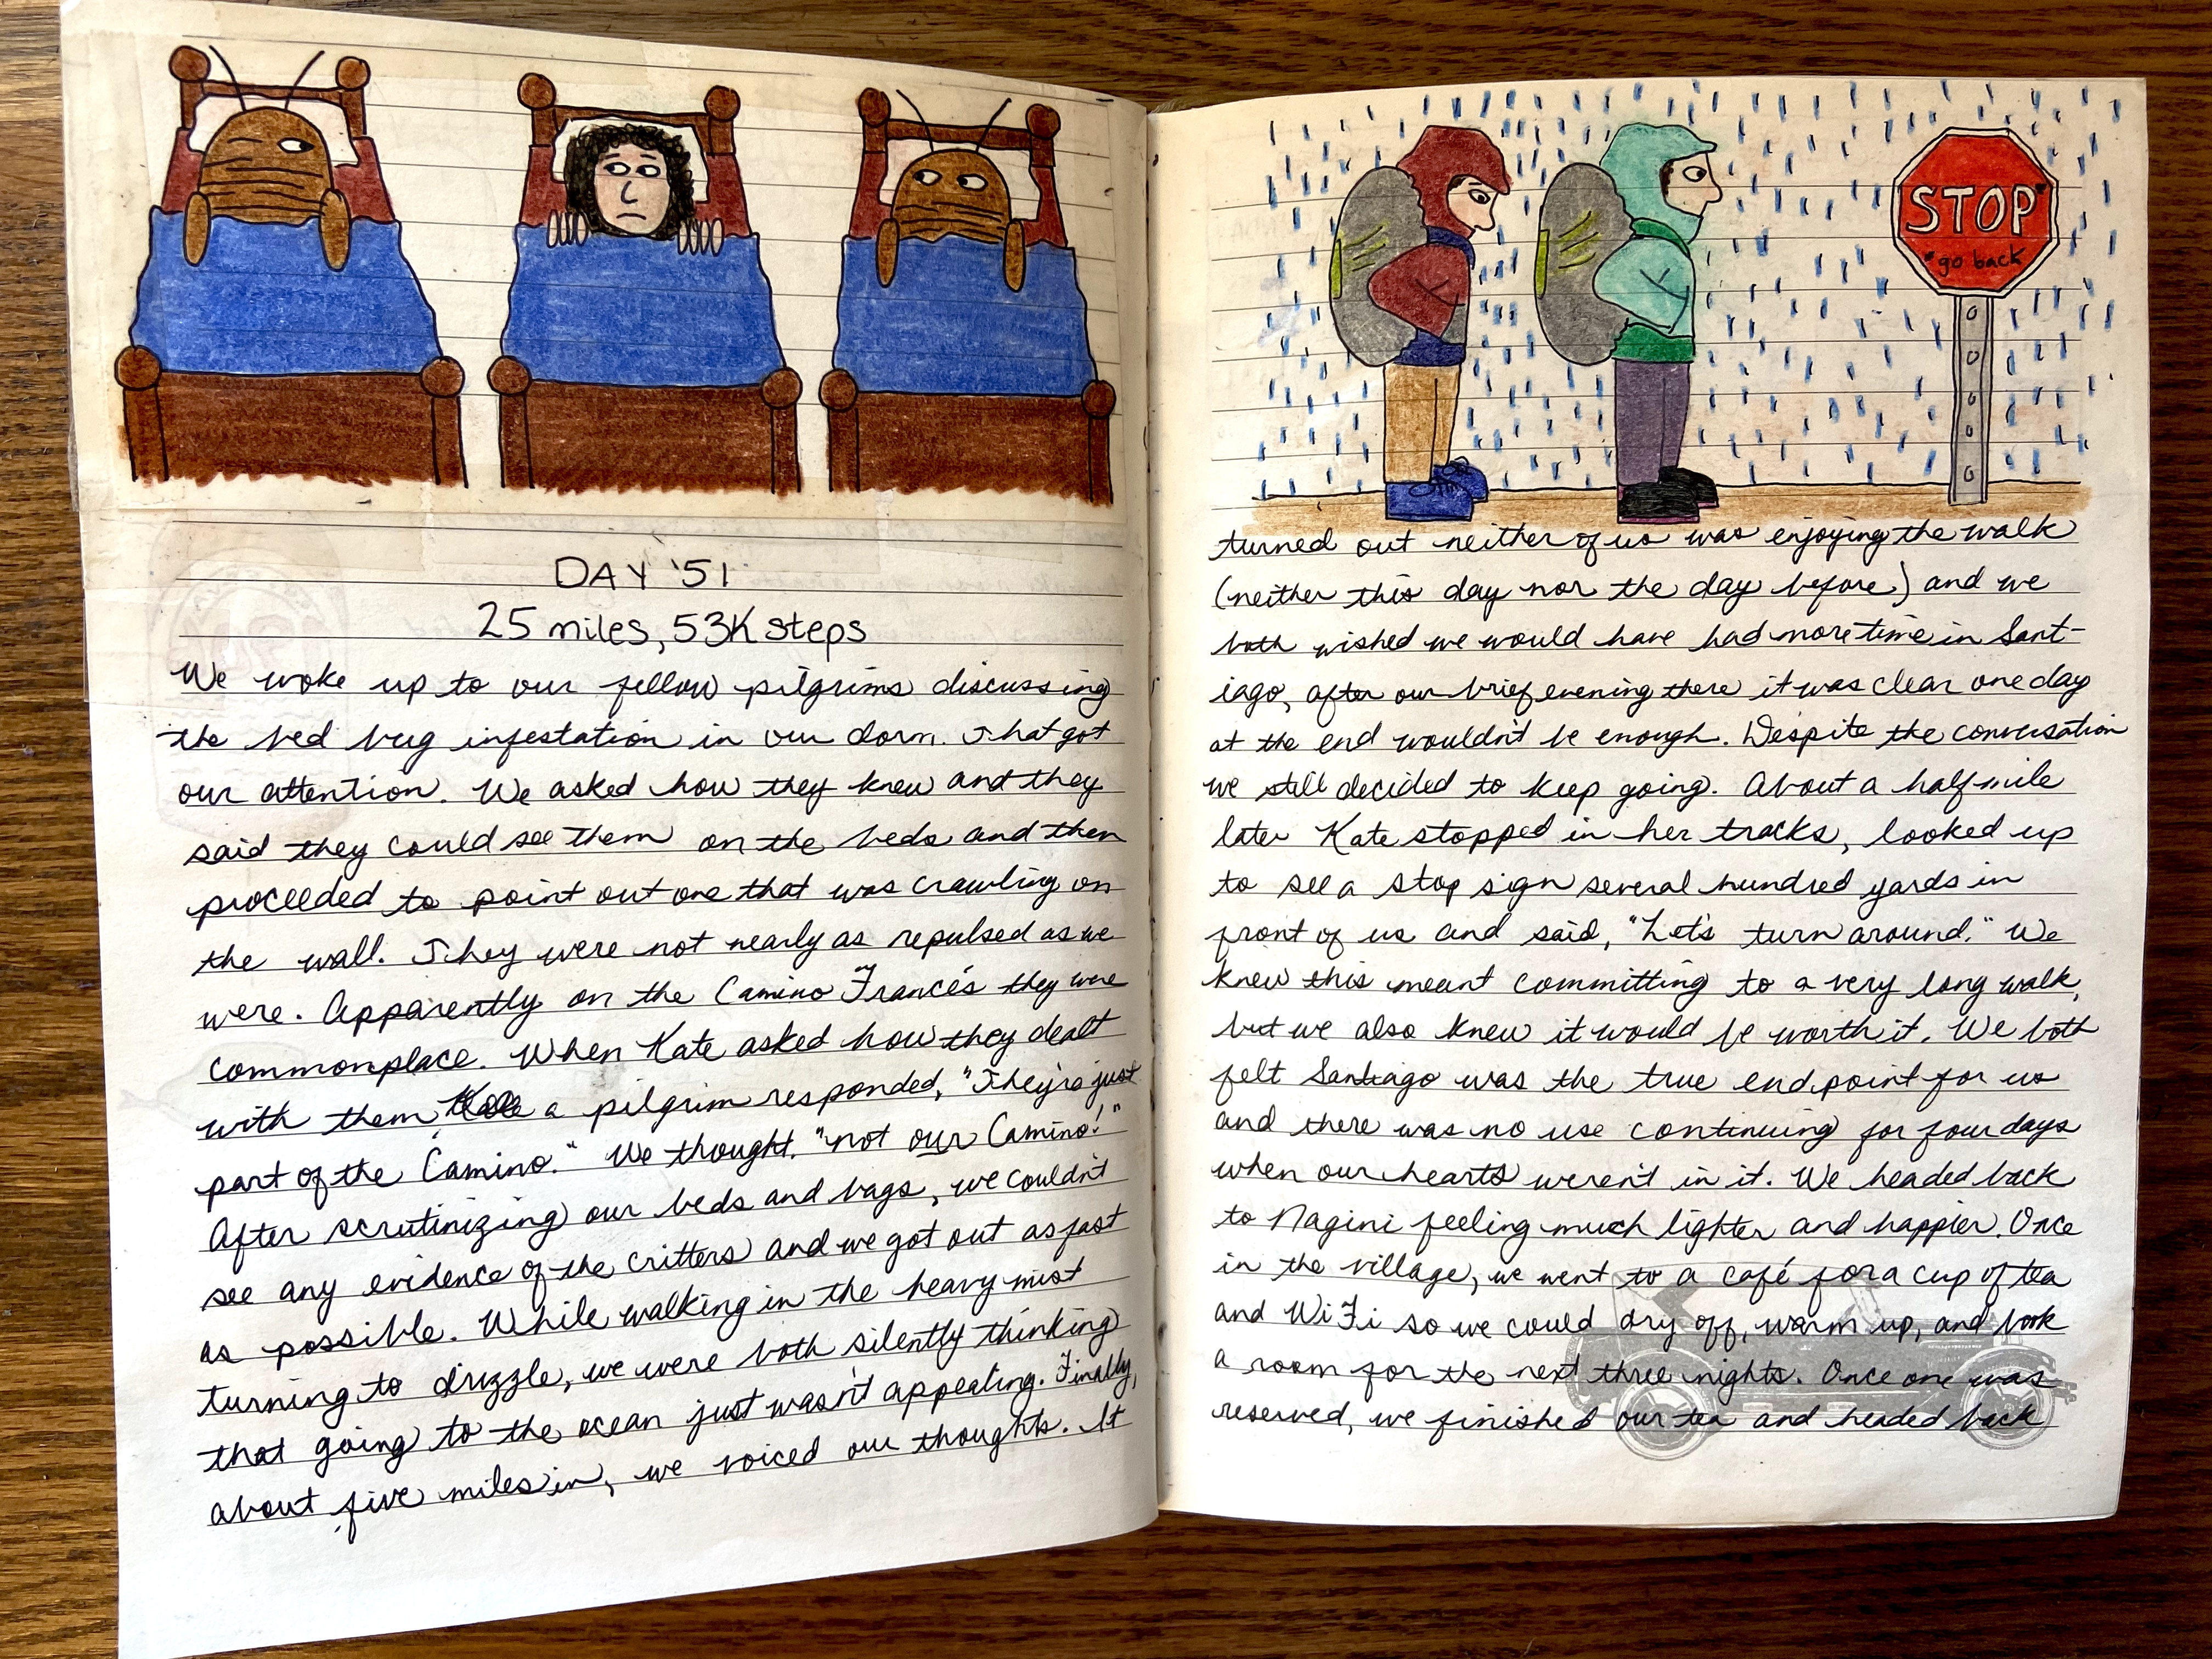 DAY '51
25 miles, 53K steps
We woke up to our fellow pilgrims discussing
the bed bug infestation in our dorm. That got
our attention. We asked how they knew and they
said they could see them on the beds and then
proceeded to point out one that was crawling on
the wall. They were not nearly as repulsed as we
were. Apparently on the Camino Francés they were
commonplace. When Kate asked how they dealt
with them, a pilgrim responded, "They're just
part of the Camino." We thought, "not our Camino!"
After scrutinizing our beds and bags, we couldn't
see any evidence of the critters and we got out as fast
as possible. While walking in the heavy mist
turning to drizzle, we were both silently thinking
that going to the ocean just wasn't appealing. Finally,
about five miles in, we voiced our thoughts. It
STOP
"go back"
turned out neither of us was enjoying the walk
(neither this day nor the day before) and we
both wished we would have had more time in Sant-
iago, after our brief evening there it was clear one day
at the end wouldn't be enough. Despite the conversation
we still decided to keep going. About a half mile
later Kate stopped in her tracks, looked up
to see a stop sign several hundred yards in
front of us and said, "Let's turn around." We
knew this meant committing to a very long walk,
but we also knew it would be worth it. We both
felt Santiago was the true endpoint for us
and there was no use continuing for four days
when our hearts weren't in it. We headed back
to Nagini feeling much lighter and happier. Once
in the village, we went to a café for a cup of tea
and WiFi so we could dry off, warm up, and book
a room for the next three nights. Once one was
reserved, we finished our tea and headed back